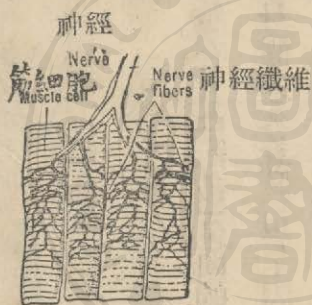 神經
Nerve
筋細胞
Muscle cell
Nerve fibers
神經纖維